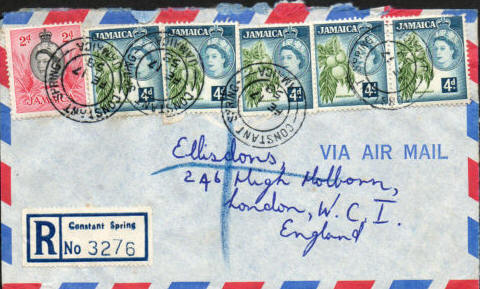 2d 2d
JAMAICA
JAMAICA
4d
JAMAICA
4d
JAMAICA
4d
JAMAICA
4d
JAMAICA
4d
CONSTANT SPRING
CONSTANT SPRING
CONSTANT SPRING
VIA AIR MAIL
Ellisdons,
246 High Holborn,
London, W.C.I.
England
R
Constant Spring
No 3276